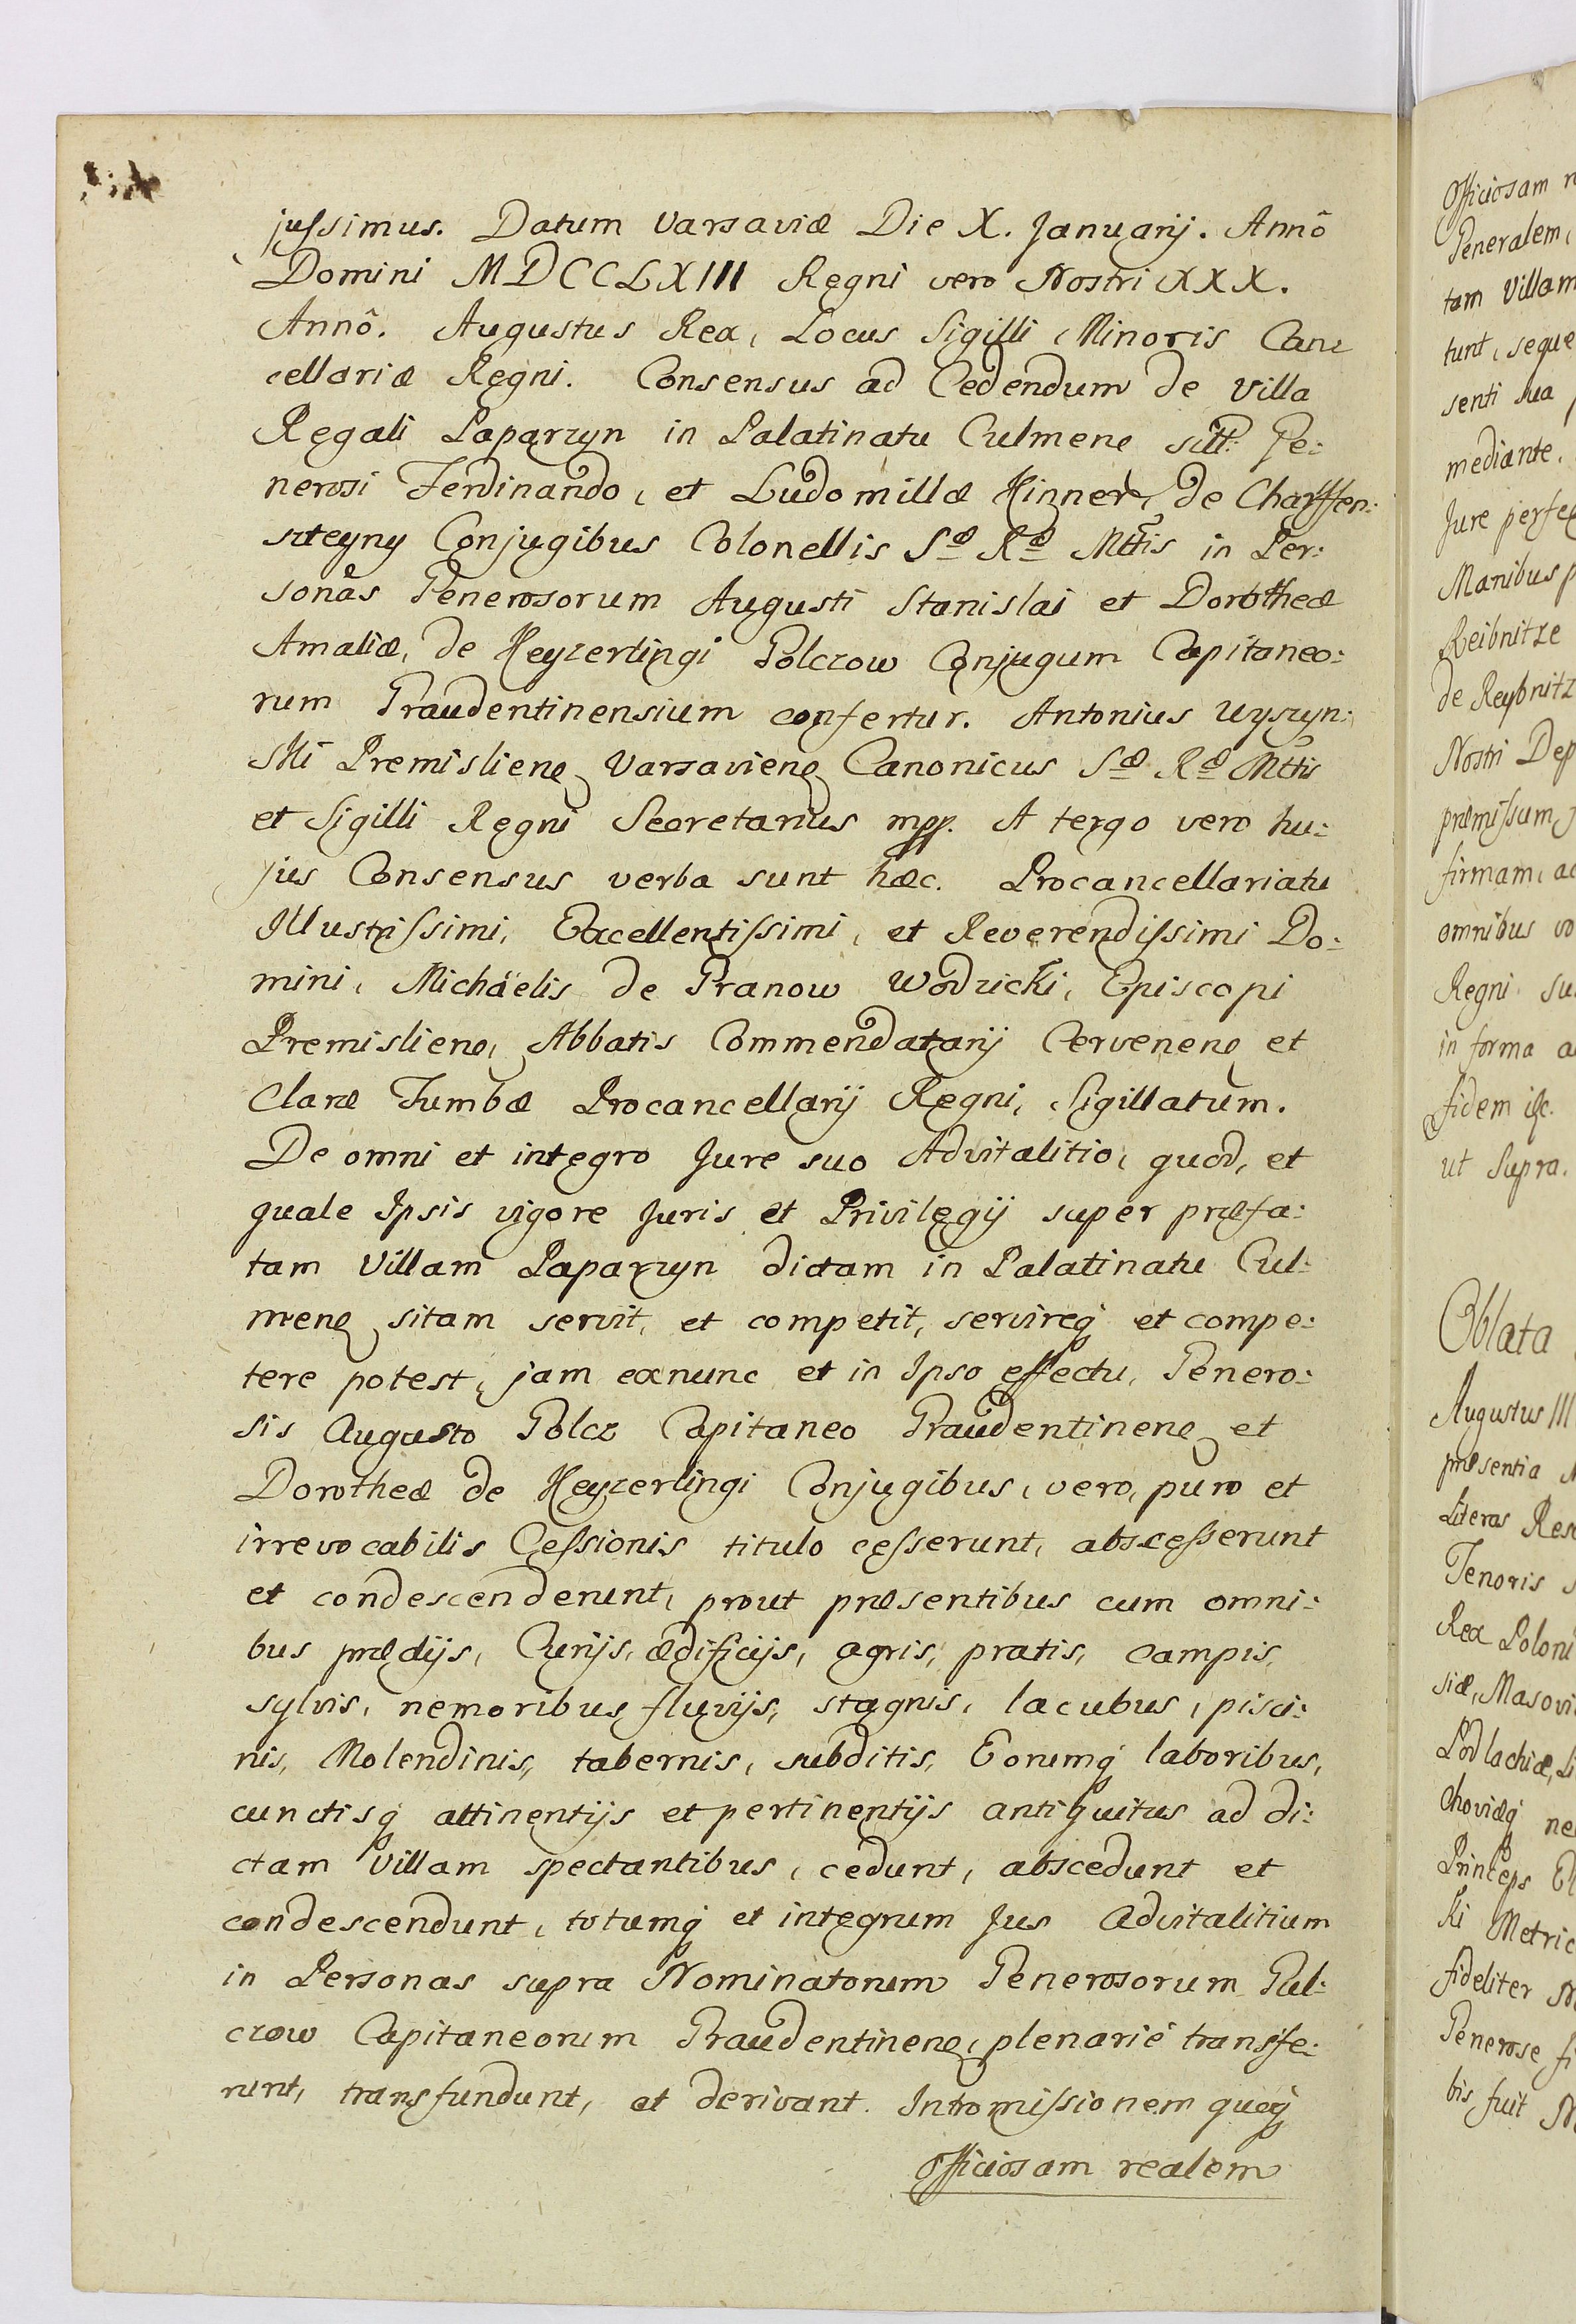 jussimus. Datum Varsaviæ Die X. Januarij. Annô
Domini MDCCLXIII Regni vero Nostri XXX.
Annô. Augustus Rex, Locus Sigilli Minoris Can:
cellariæ Regni. Consensus ad Cedendum de Villa
Regali Paparzyn in Palatinatu Culmenẽ sitt: Ge:
nerosi Ferdinando, et Ludomillæ Hinnere, de Charffen:
szteyny Conjugibus Colonellis Sæ Ræ Mttis in Per:
sonas Generosorum Augusti Stanislai et Dorotheæ
Amaliæ, de Keyzerlingi Golczow Conjugum Capitaneo:
rum Graudentinensium confertur. Antonius Wyszyn:
ski Premislienẽ Varsavienẽ Canonicus Sæ Ræ Mttis
et Sigilli Regni Secretarius mpp. A tergo vero hu:
jus Consensus verba sunt hæc. Procancellariatu
Illustrissimi, Excellentissimi, et Reverendissimi Do:
mini, Michäelis de Granow Wodzicki, Episcopi
Premislienẽ, Abbatis Commendatarij Cervenenẽ et
Claræ Tumbæ Procancellarij Regni, Sigillatum.
De omni et integro Jure suo Advitalitio, quod, et
quale Ipsis vigore Juris et Privilegij super præfa:
tam Villam Paparzyn dictam in Palatinatu Cul:
menẽ sitam servit, et competit, servireq et compe:
tere potest, jam exnunc et in Ipso effectu, Genero:
sis Augusto Golcz Capitaneo Graudentinenẽ et
Dorotheæ de Keyzerlingi Conjugibus, vero, puro et
irrevocabilis Cessionis titulo cesserunt, abscesserunt
et condescenderunt, prout præsentibus cum omni:
bus prædijs, Curijs, ædificijs, agris, pratis, campis,
sylvis, nemoribus, fluvijs, stagnis, lacubus, pisci:
nis, Molendinis, tabernis, subditis, Eorumq laboribus,
cunctisq attinentijs et pertinentijs antiquitus ad di:
ctam Villam spectantibus, cedunt, abscedunt et
condescendunt, totumq et integrum Jus Advitalitium
in Personas supra Nominatorum Generosorum Gul:
czow Capitaneorum Graudentinenẽ, plenarié transfe:
runt, transfundunt, et derivant. Intromissionem quoq
Officiosam realem
Officiosam
Generalem,
tam Villam
tunt, seque
senti sua
mediante.
Jure
Manibus
Reibnitze
de Reybnitz
Nostri Dep
præmissum
firmam, ac
omnibus
Regni
in forma
fidem
ut Supra.
Oblata
Augustus III
præsentia
Literas
Tenoris
Rex Poloni
siæ, Masovi
Podlachiæ, Li
choviæq
Princeps
ki Metric
fideliter
Generose
bis fuit